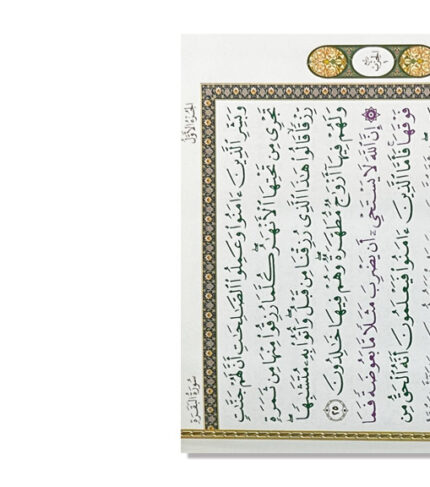 الجُزْءُ الأَوَّلُ
سُورَةُ البَقَرَةِ
وَبَشِّرِ ٱلَّذِينَ ءَامَنُوا۟ وَعَمِلُوا۟ ٱلصَّٰلِحَٰتِ أَنَّ لَهُمْ جَنَّٰتٍ
تَجْرِى مِن تَحْتِهَا ٱلْأَنْهَٰرُ ۖ كُلَّمَا رُزِقُوا۟ مِنْهَا مِن ثَمَرَةٍ
رِّزْقًا ۙ قَالُوا۟ هَٰذَا ٱلَّذِى رُزِقْنَا مِن قَبْلُ ۖ وَأُتُوا۟ بِهِۦ مُتَشَٰبِهًا ۖ
وَلَهُمْ فِيهَآ أَزْوَٰجٌ مُّطَهَّرَةٌ ۖ وَهُمْ فِيهَا خَٰلِدُونَ ٢٥
۞ إِنَّ ٱللَّهَ لَا يَسْتَحْىِۦٓ أَن يَضْرِبَ مَثَلًا مَّا بَعُوضَةً فَمَا
فَوْقَهَا ۚ فَأَمَّا ٱلَّذِينَ ءَامَنُوا۟ فَيَعْلَمُونَ أَنَّهُ ٱلْحَقُّ مِن